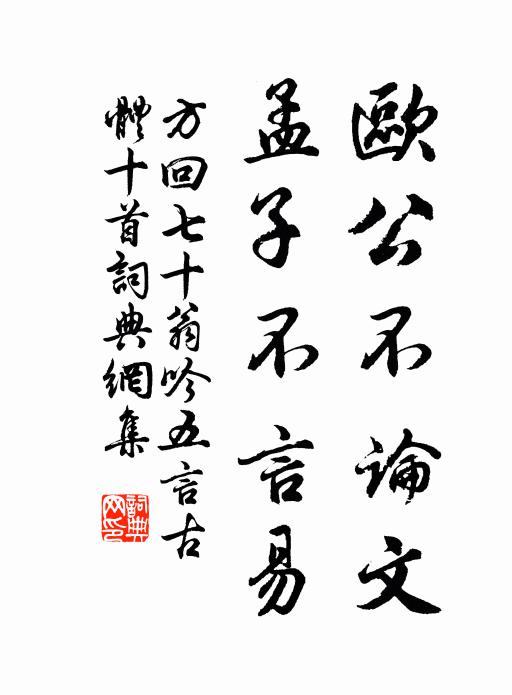 歐公不論文
孟子不言易
方回七十翁吟五言古
體十首詞典網集
詞典網印